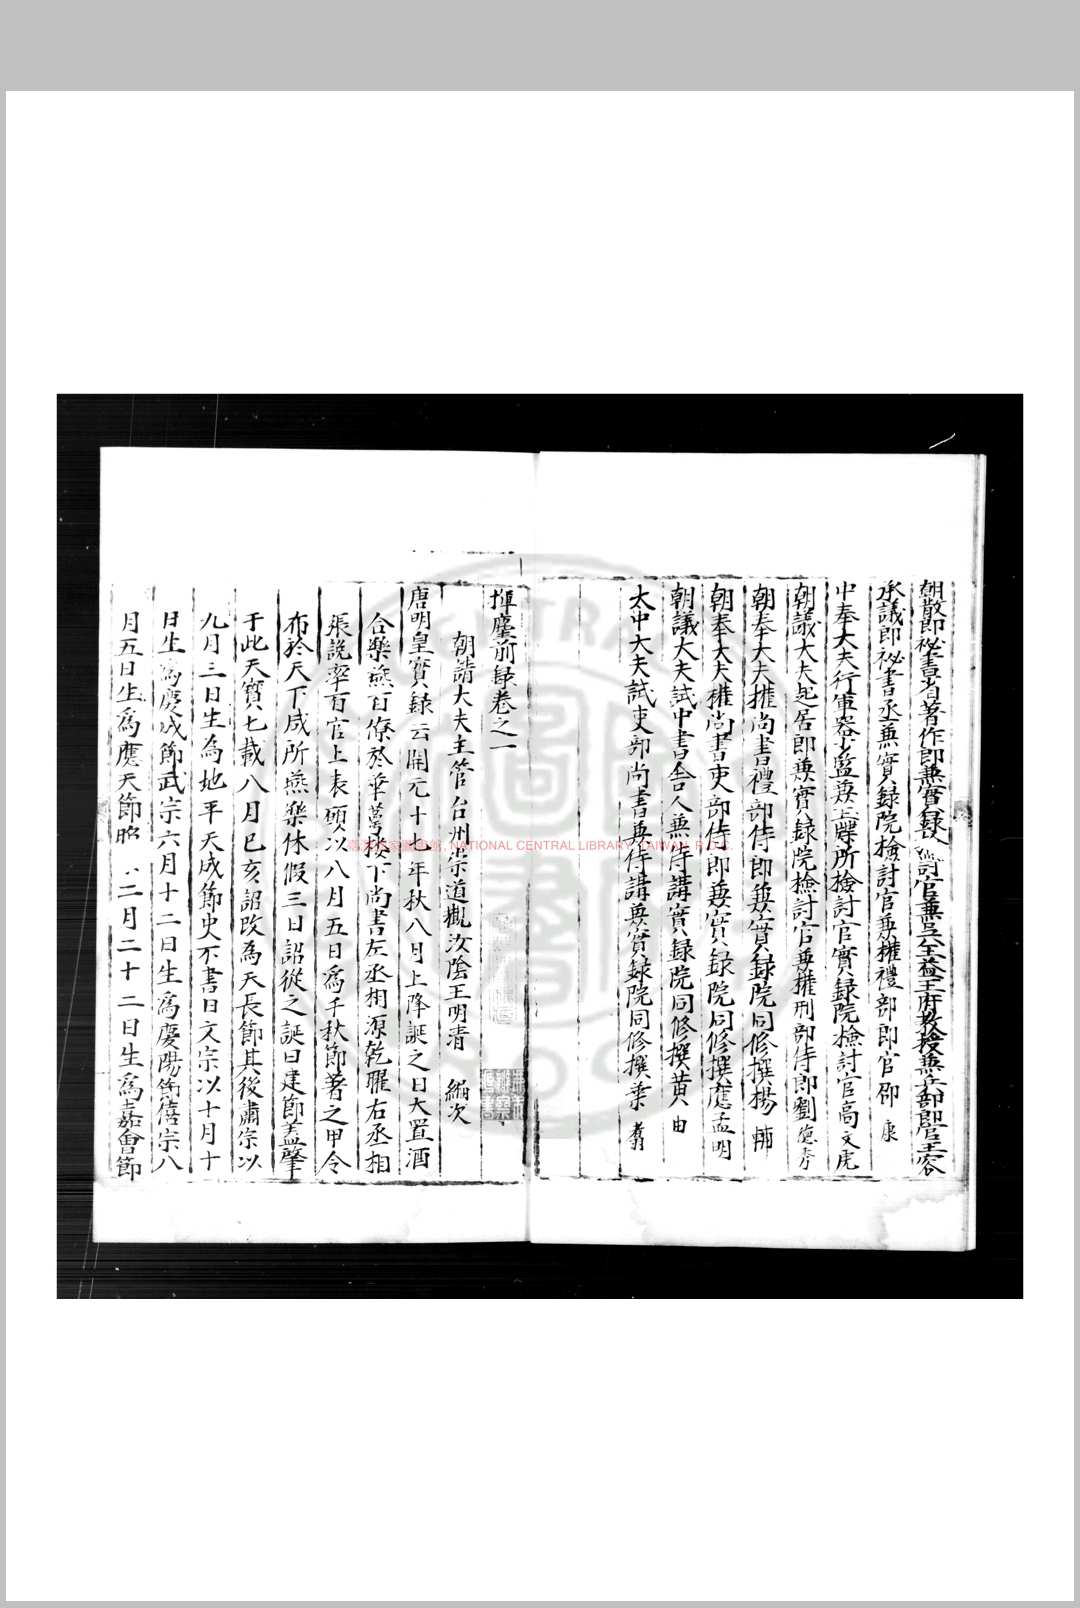 朝散郎祕書省著作郎兼實錄院檢討官兼吳益王府教授兼兵部郎官王容
承議郎祕書丞兼實録院檢討官兼權禮部郎官邵 康
中奉大夫行軍器少監兼玉牒所檢討官實録院檢討官高文虎
朝議大夫起居郎兼實録院檢討官兼權刑部侍郎劉德秀
朝奉大夫權尚書禮部侍郎兼實録院同修撰楊 輔
朝奉大夫權尚書吏部侍郎兼實録院同修撰應孟明
朝議大夫試中書舍人兼侍講實録院同修撰黃 由
太中大夫試吏部尚書兼侍講兼實録院同修撰葉 翥
揮麈前録卷之一
朝請大夫主管台州崇道觀汝陰王明清 編次
唐明皇實録云開元十七年秋八月上降誕之日大置酒
合樂燕百僚於華萼樓下尚書左丞相源乾曜右丞相
張說率百官上表願以八月五日爲千秋節著之甲令
布於天下咸所燕樂休假三日詔從之誕日建節蓋肇
于此天寶七載八月己亥詔改為天長節其後肅宗以
九月三日生為地平天成節史不書日文宗以十月十
日生為慶成節武宗六月十二日生爲慶陽節僖宗八
月五日生爲應天節昭 二月二十二日生爲嘉會節
國家圖書館, NATIONAL CENTRAL LIBRARY, TAIWAN, R.O.C.